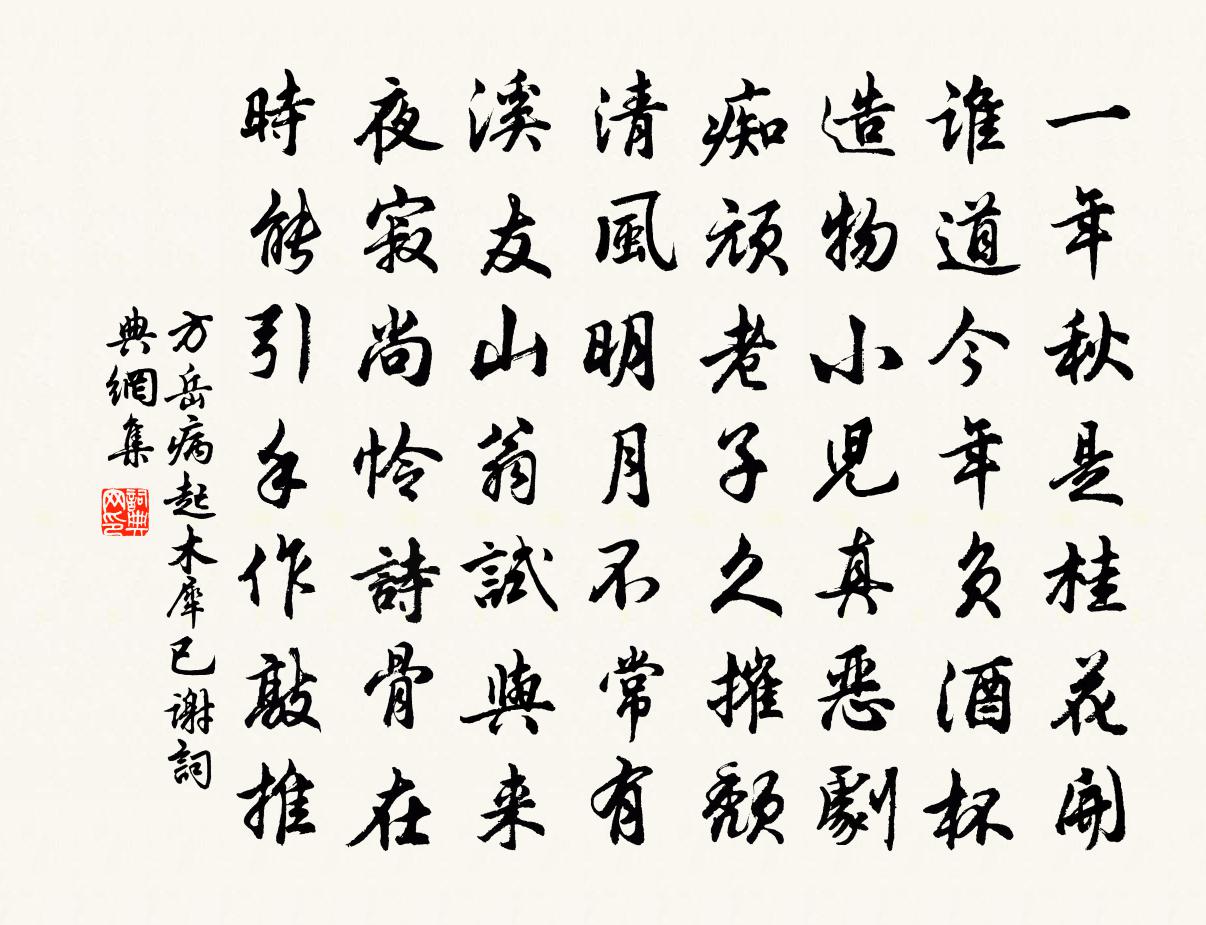 一年秋是桂花開
谁道今年负酒杯
造物小児真惡劇
痴頑老子久摧頹
清風明月不常有
溪友山翁試與来
夜寂尚怜詩骨在
時能引手作敲推
方岳病起木犀已謝詞
典網集
詞典网印